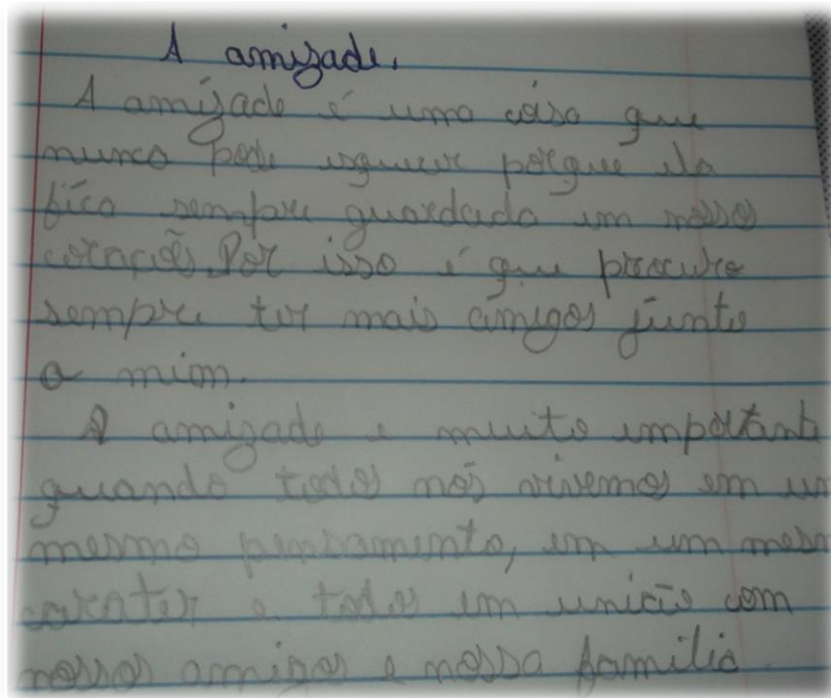 A amizade.
A amizade é uma coisa que
nunca pode esquecer porque ela
fica sempre guardada em nosso
coração. Por isso é que procuro
sempre ter mais amigos junto
a mim.
A amizade e muito important
quando todos nós vivemos em um
mesmo pensamento, em um mesm
carater e todos em união com
nossos amigos e nossa familia.